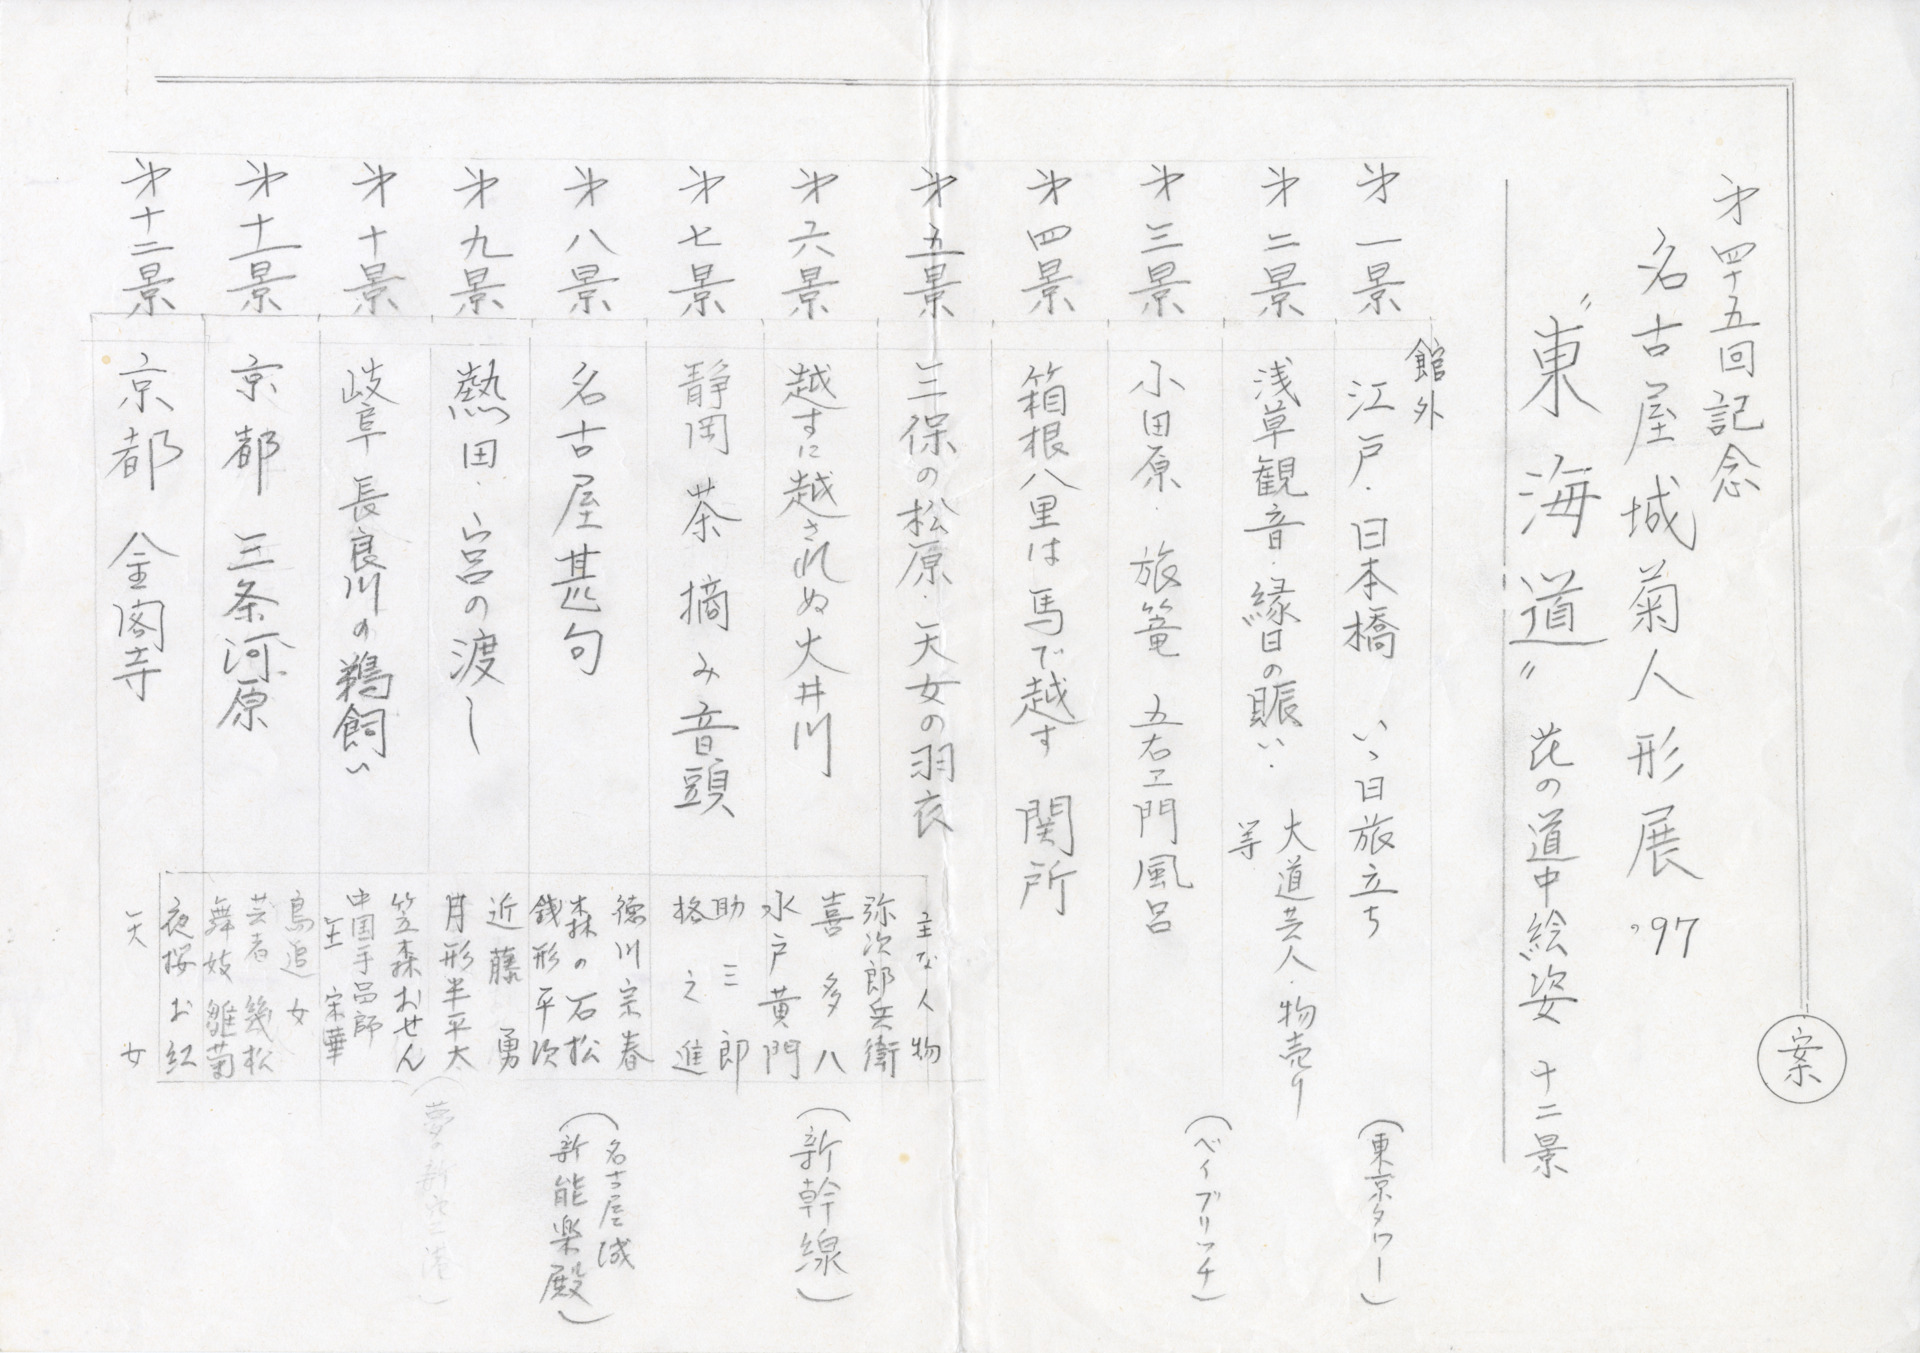 㐧四十五回記念
名古屋城菊人形展 '97
〝東海道〟花の道中絵姿 十二景
案
㐧一景 館外 江戸・日本橋 いゝ日旅立ち (東京タワー)
㐧二景 浅草観音・縁日の賑い・大道芸人・物売り等
(ベイブリッチ)
㐧三景 小田原・旅篭 五右ヱ門風呂
㐧四景 箱根八里は馬で越す 関所
㐧五景 三保の松原・天女の羽衣
㐧六景 越すに越されぬ大井川 (新幹線)
㐧七景 静岡 茶摘み音頭
㐧八景 名古屋甚句 (名古屋城 新能楽殿)
㐧九景 熱田・宮の渡し (夢の新空港)
㐧十景 岐阜 長良川の鵜飼い
㐧十一景 京都 三条河原
㐧十二景 京都 金閣寺
主な人物
弥次郎兵衛
喜多八
水戸黄門
助三郎
格之進
徳川宗春
森の石松
銭形平次
近藤勇
月形半平太
笠森おせん
中国手品師
王 宋華
鳥追女
芸者 幾松
舞妓 雛菊
夜桜お紅
天女